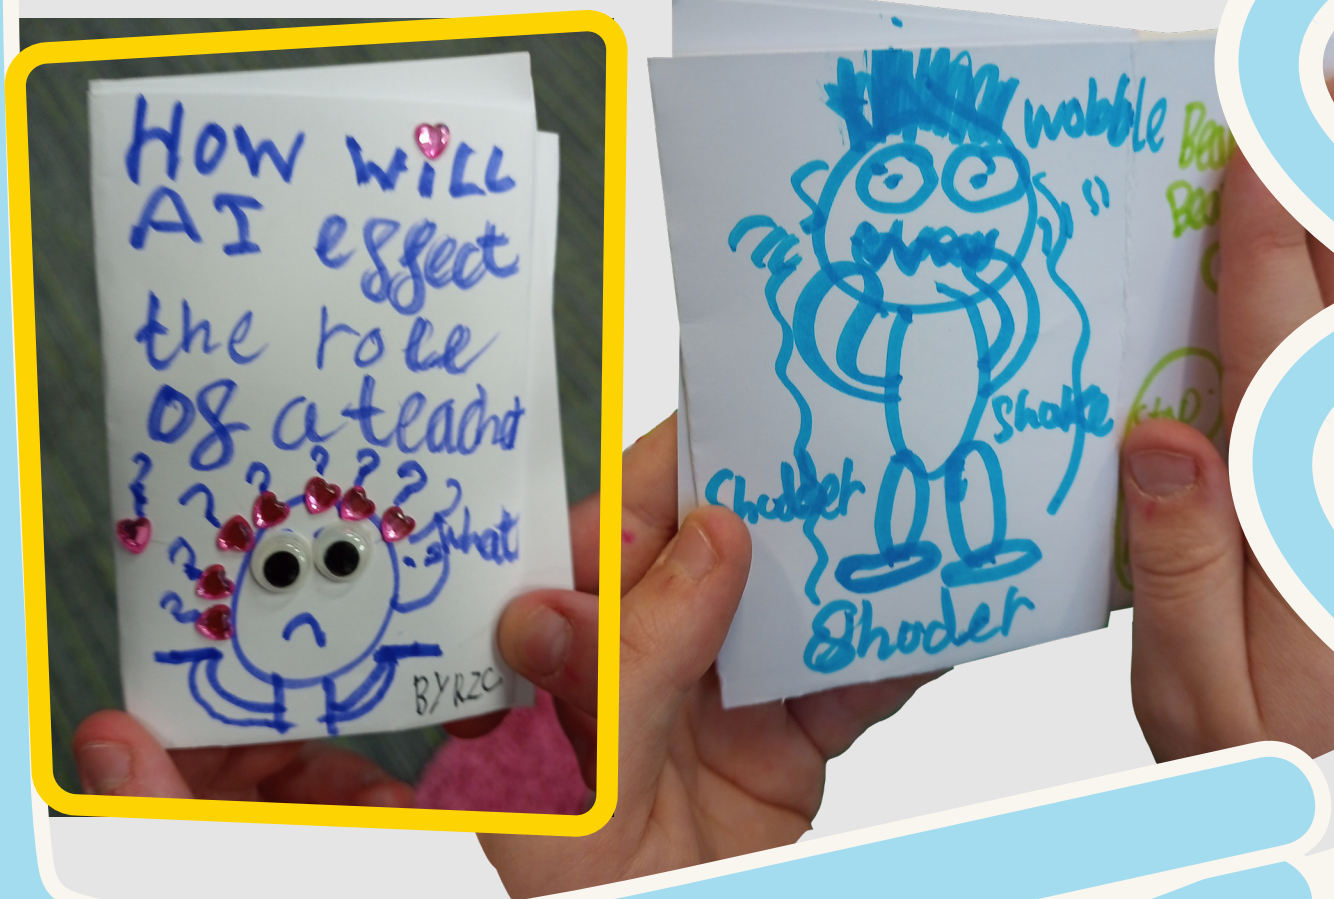 HOW WiLL
AI effect
the role
of a teacher
? ? ? ? ? ? ?
? ?
what
BY RZC
wobble
shake
Shodder
Shoder